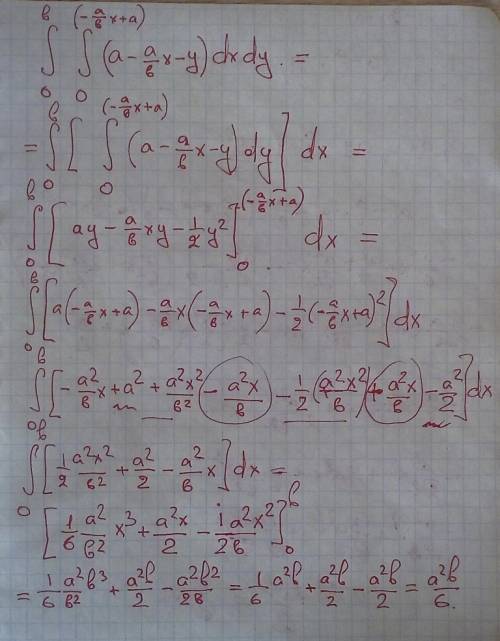 ∫₀ᵇ ∫₀^(-a/b x+a) (a - a/b x - y) dx dy. =
= ∫₀ᵇ [ ∫₀^(-a/b x+a) (a - a/b x - y) dy ] dx =
∫₀ᵇ [ ay - a/b xy - 1/2 y² ]₀^(-a/b x+a) dx =
∫₀ᵇ [ a(-a/b x+a) - a/b x(-a/b x + a) - 1/2 (-a/b x+a)² ] dx
∫₀ᵇ [ -a²/b x + a² + a²x²/b² - a²x/b - 1/2 (a²x²/b) + a²x/b - a²/2 ] dx
∫₀ᵇ [ 1/2 a²x²/b² + a²/2 - a²/b x ] dx =
[ 1/6 a²/b² x³ + a²x/2 - 1a²x²/2b ]₀ᵇ
= 1/6 a²b³/b² + a²b/2 - a²b²/2b = 1/6 a²b + a²b/2 - a²b/2 = a²b/6.